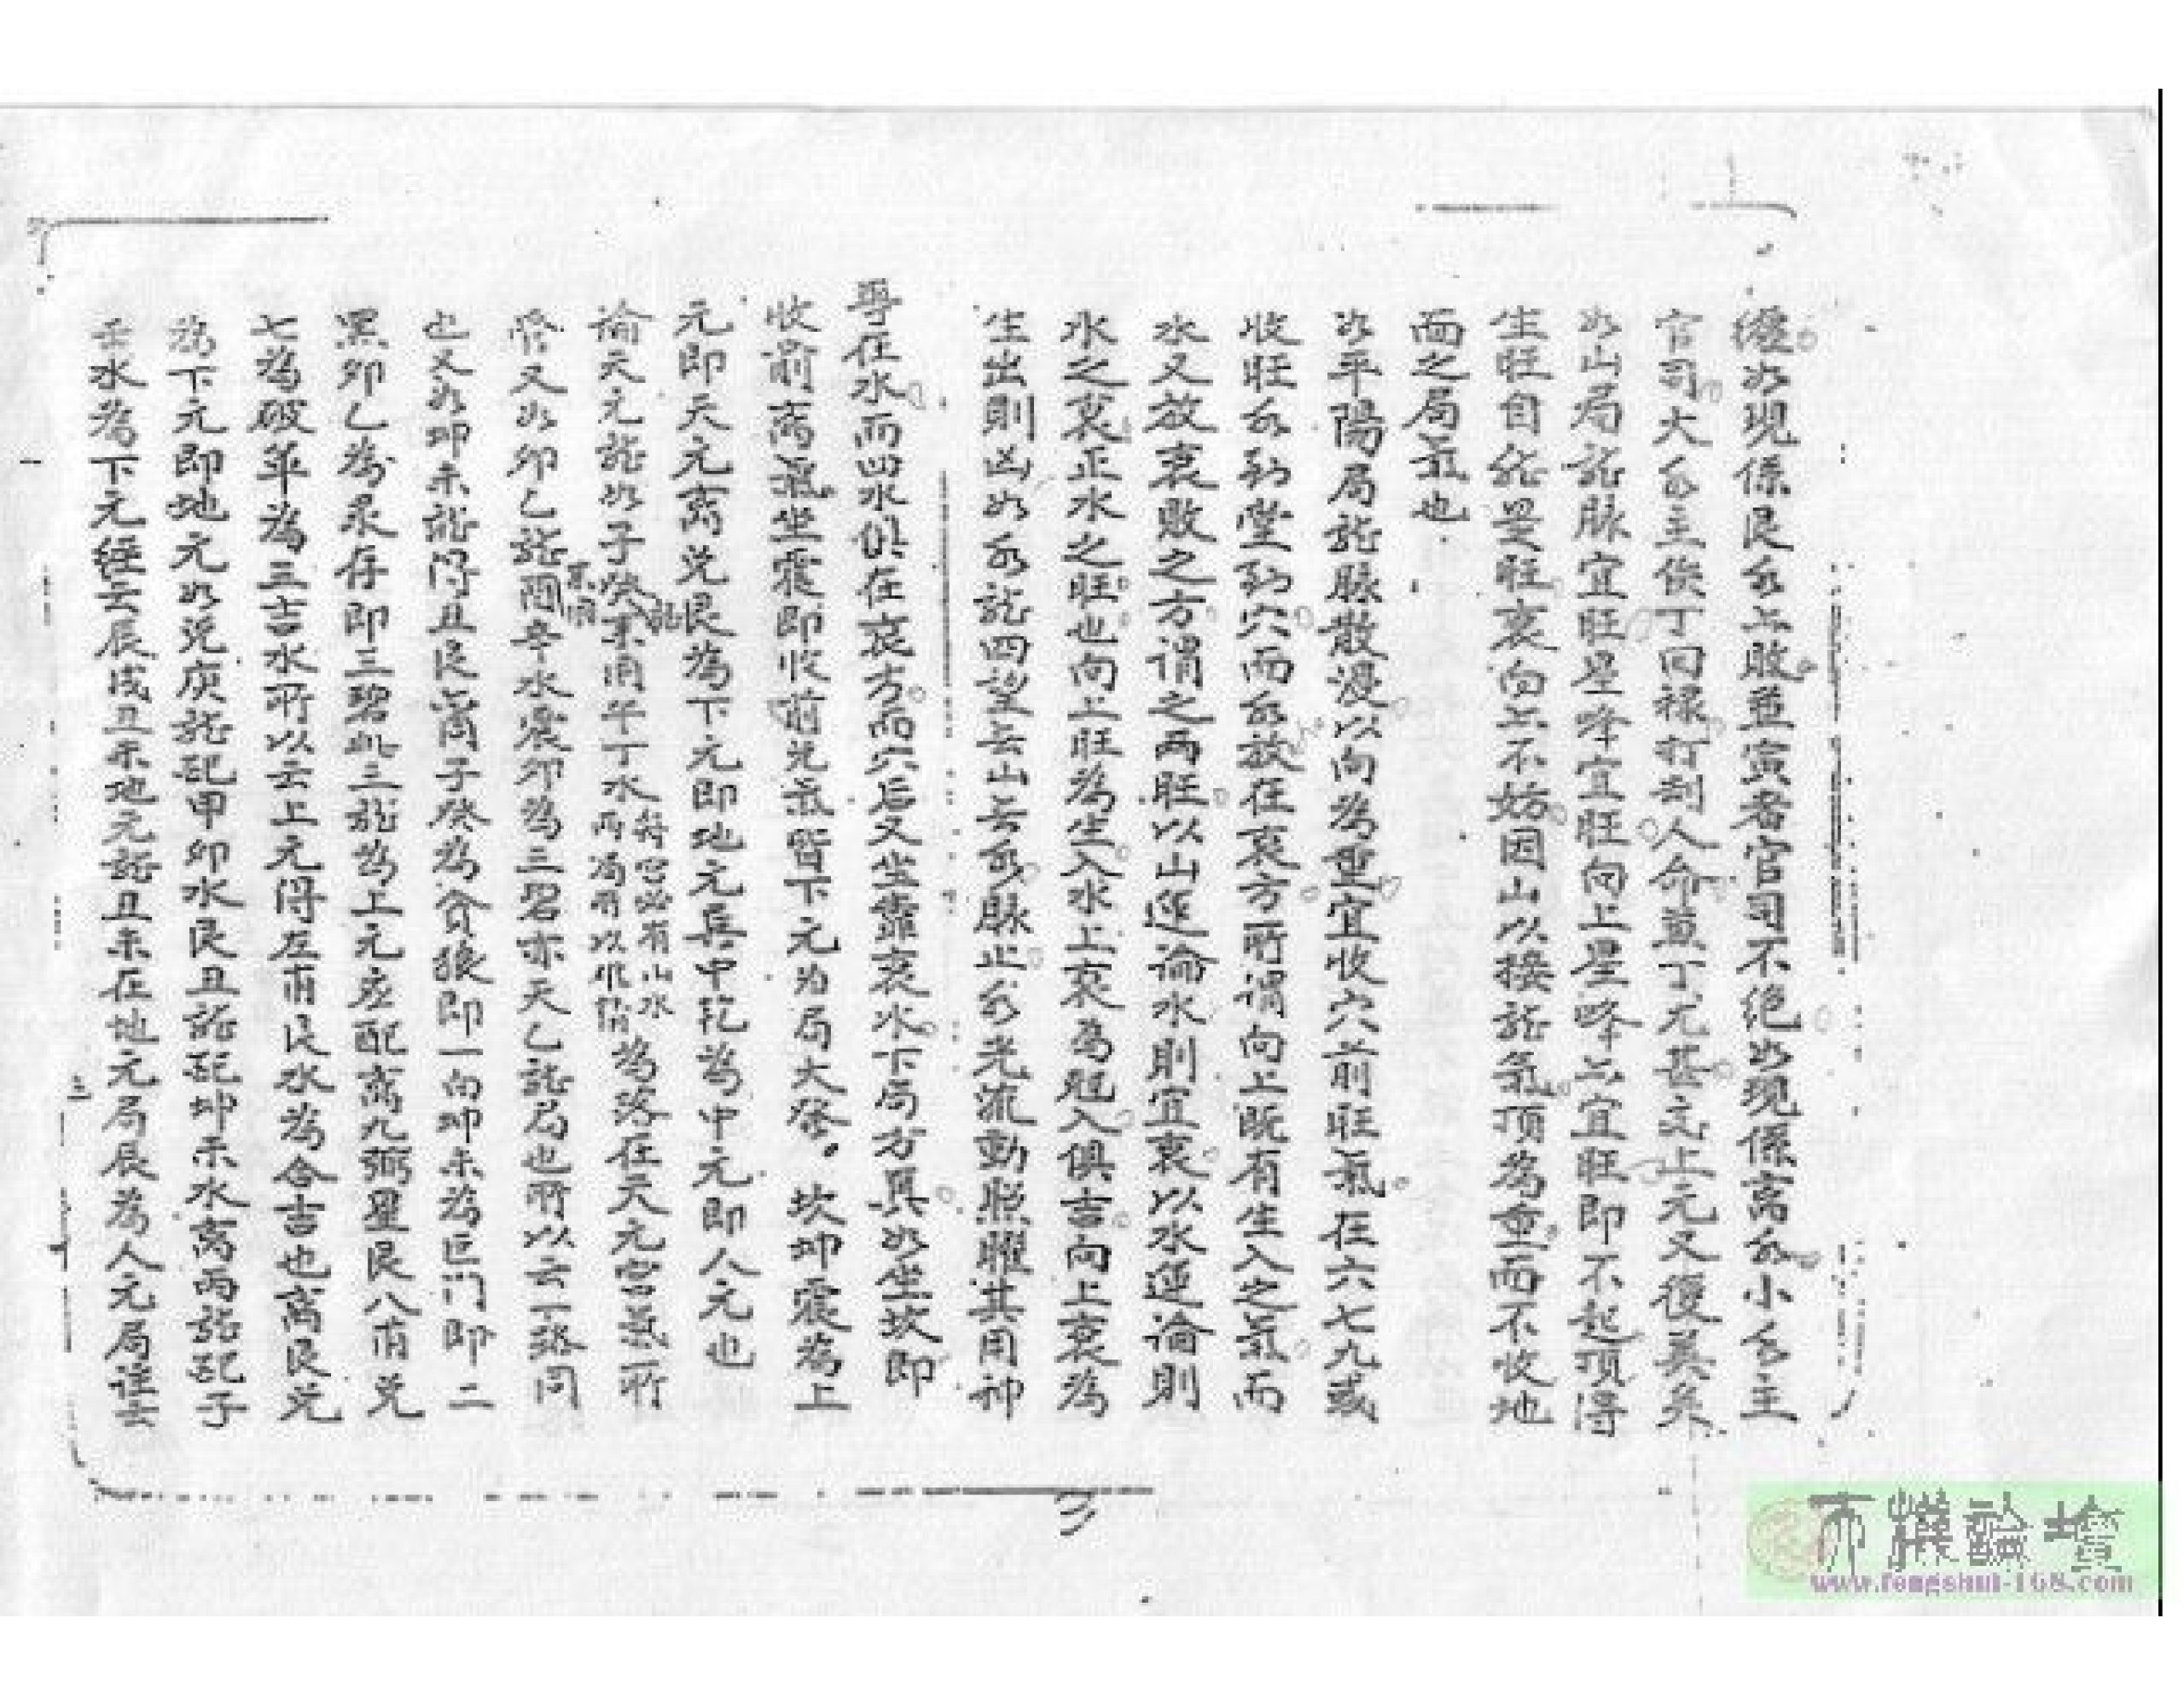 如現係艮水上敗並寅者官司不絕如現係离水小台主
官司大台主侯丁回祿打刦人命並丁尤甚交上元又復美矣
如山局龍脉宜旺星峰宜旺向上星峰上宜旺即不起頂得
生旺自龍是旺衰向上不妨因山以接龍氣頂為重而不收地
面之局氣也
如平陽局龍脉散漫以向為重宜收穴前旺氣在六七九或
收旺水到堂到穴而水放在衰方所謂向上既有生入之氣而
水又放衰敗之方謂之兩旺以山運論水則宜衰以水運論則
水之衰正水之旺也向上旺為生入水上衰為尅入俱吉向上衰為
生出則凶如水龍四望去山去水脉止水光流動照耀其用神
專在水而四水俱在衰方而穴后又坐靠衰水下局方眞如坐坎即
收前离氣坐震即收前兌氣皆下元为局大發。坎坤震為上
元即天元离兌艮為下元即地元巽中乾為中元即人元也
論天元龍如子癸龍不用午丁水 為落在天元宮氣所
管又如卯乙龍酉辛水震卯為三碧亦天乙龍局也所以云一路同
也又如坤未龍得丑艮 子癸為貪狼即一白坤未為巨门即二
黑卯乙為祿存即三碧此三龍為上元應配离九弼星艮八甫兌
七為破軍為三吉水所以云上元得左甫艮水為合吉也离艮兌
為下元即地元如兌庚龍配甲卯水艮丑龍配坤未水离丙龍配子
壬水為下元經云辰戌丑未地元龍丑未在地元局辰為人元局註云
三
3
www.fengshui-168.com